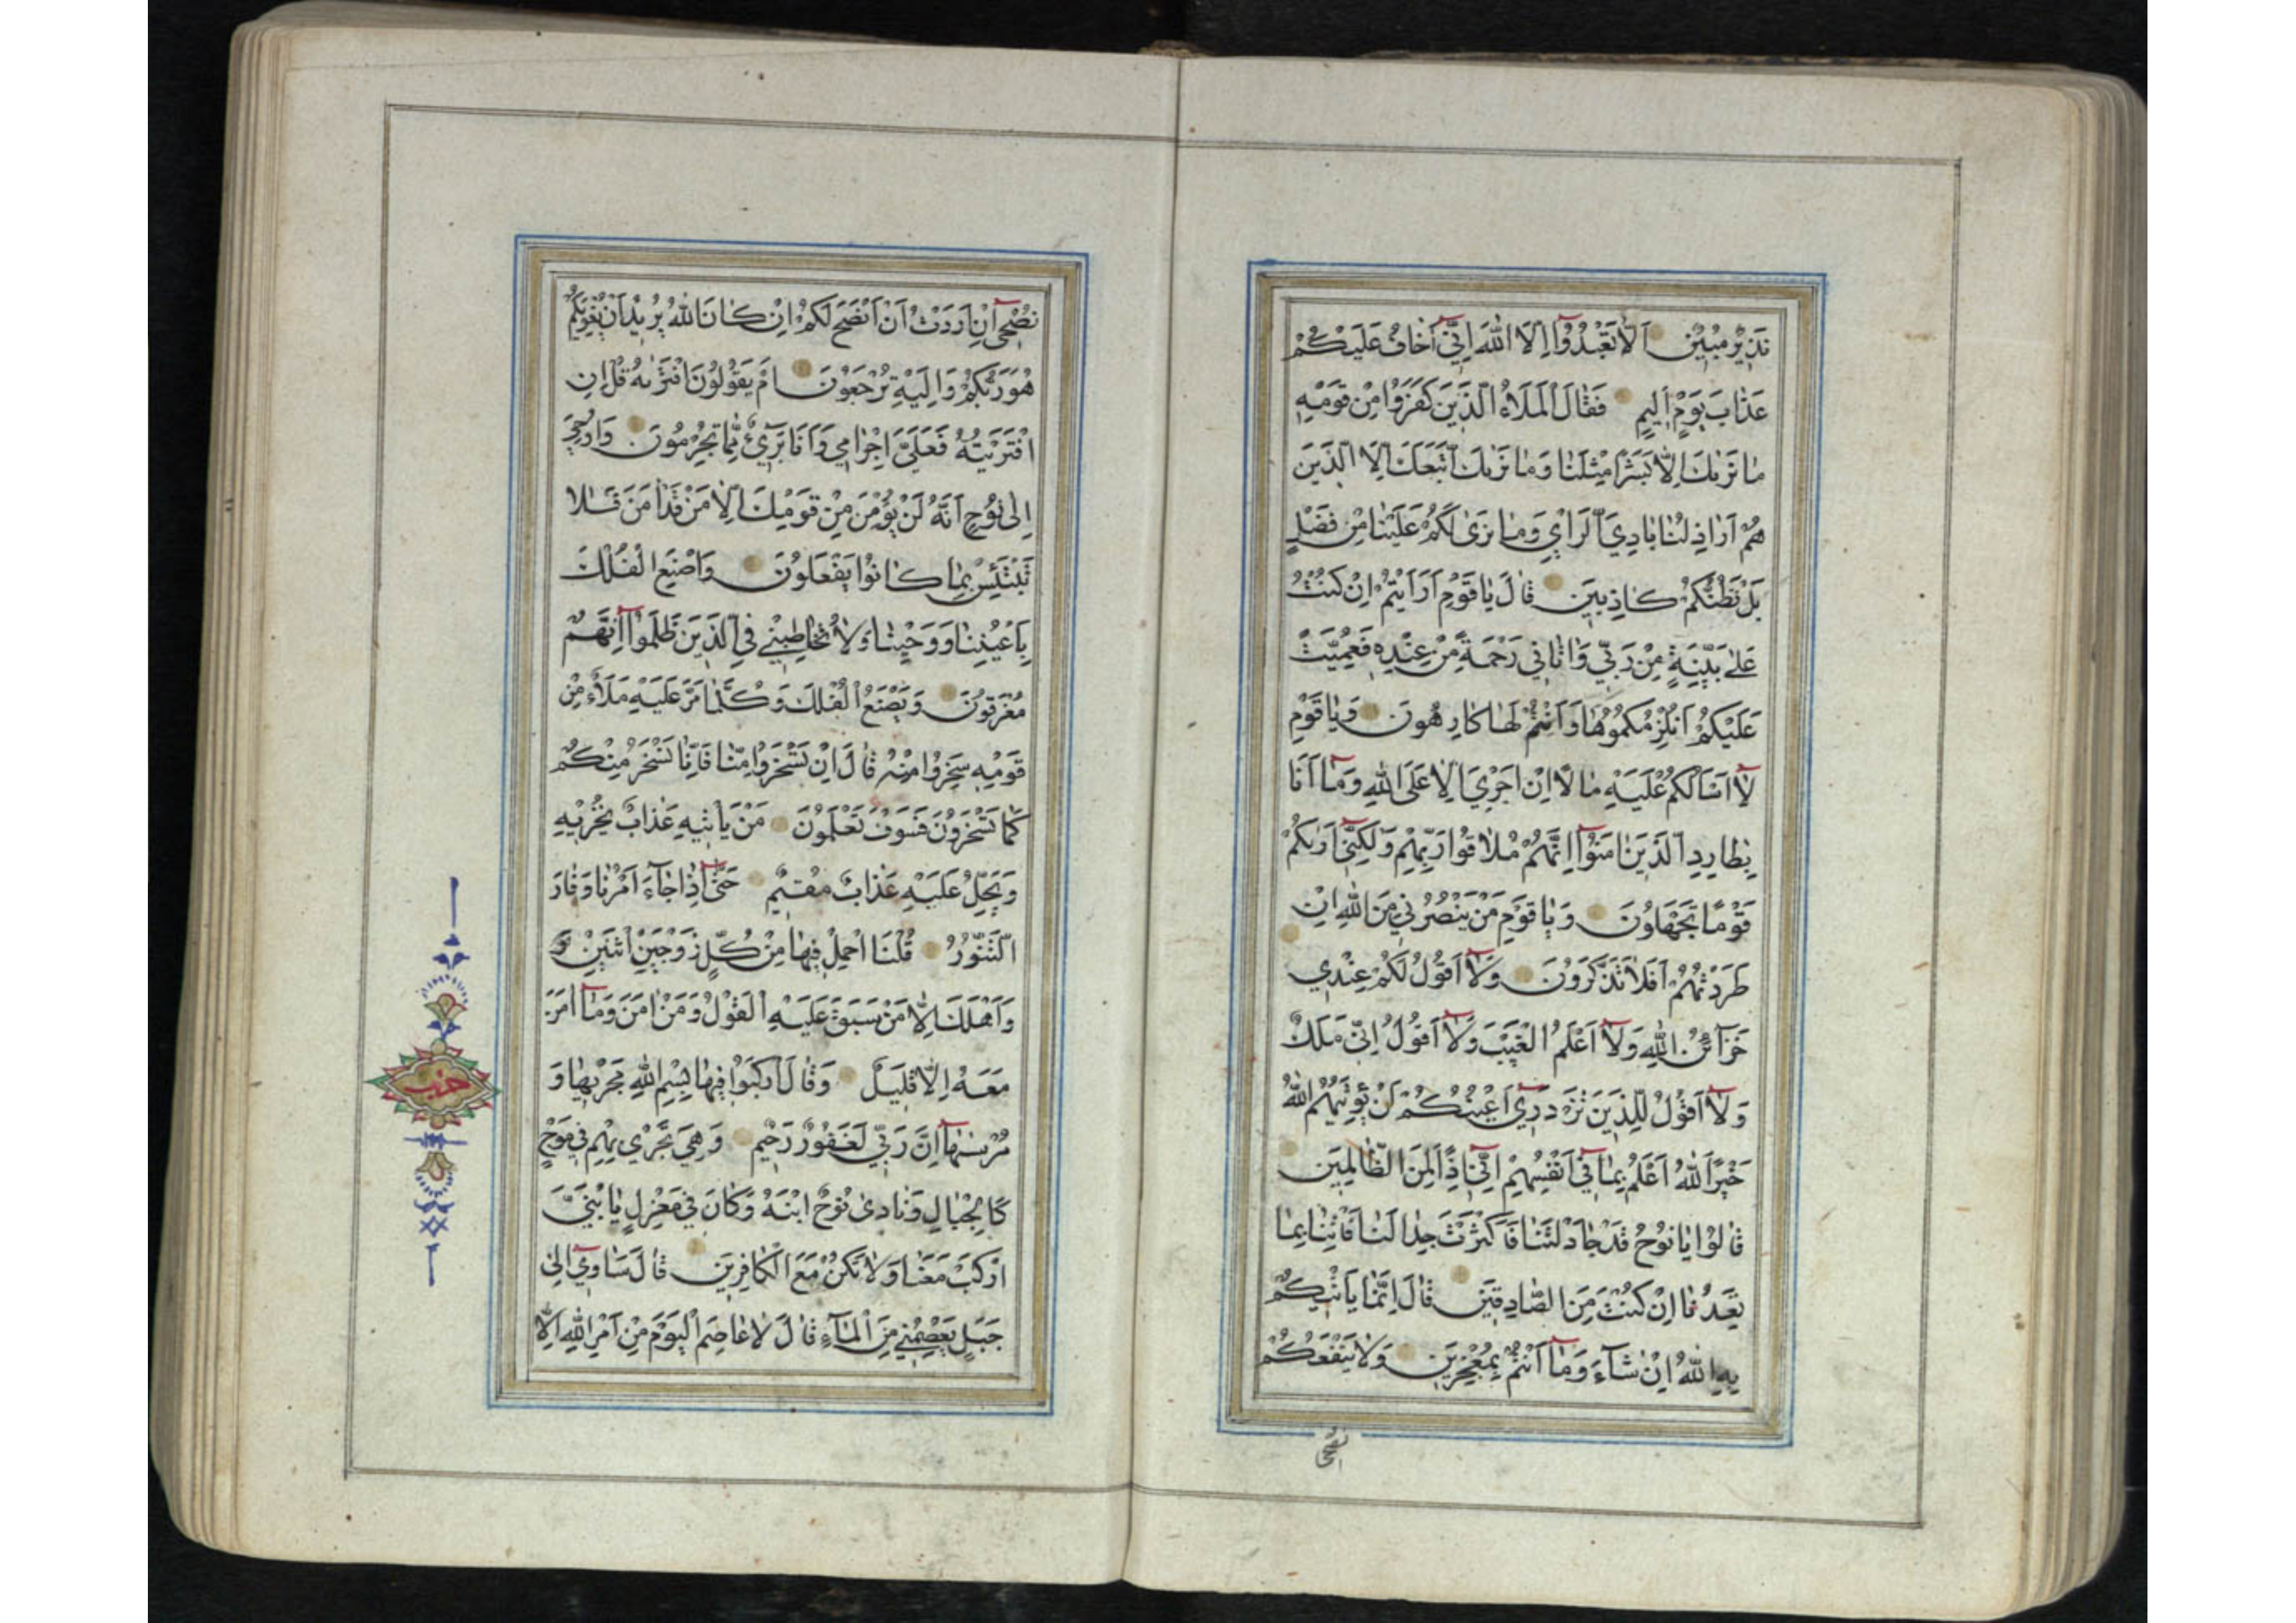 نَذِيرٌ مُبِينٌ اَلَّا تَعْبُدُوا اِلَّا اللّٰهَ اِنِّي اَخَافُ عَلَيْكُمْ
عَذَابَ يَوْمٍ اَلِيمٍ فَقَالَ الْمَلَاُ الَّذِينَ كَفَرُوا مِنْ قَوْمِهِ
مَا نَرٰيكَ اِلَّا بَشَرًا مِثْلَنَا وَمَا نَرٰيكَ اتَّبَعَكَ اِلَّا الَّذِينَ
هُمْ اَرَاذِلُنَا بَادِيَ الرَّاْيِ وَمَا نَرٰى لَكُمْ عَلَيْنَا مِنْ فَضْلٍ
بَلْ نَظُنُّكُمْ كَاذِبِينَ قَالَ يَا قَوْمِ اَرَاَيْتُمْ اِنْ كُنْتُ
عَلٰى بَيِّنَةٍ مِنْ رَبِّي وَاٰتَانِي رَحْمَةً مِنْ عِنْدِهِ فَعُمِّيَتْ
عَلَيْكُمْ اَنُلْزِمُكُمُوهَا وَاَنْتُمْ لَهَا كَارِهُونَ وَيَا قَوْمِ
لَا اَسْاَلُكُمْ عَلَيْهِ مَالًا اِنْ اَجْرِيَ اِلَّا عَلَى اللّٰهِ وَمَا اَنَا
بِطَارِدِ الَّذِينَ اٰمَنُوا اِنَّهُمْ مُلَاقُوا رَبِّهِمْ وَلٰكِنِّي اَرٰيكُمْ
قَوْمًا تَجْهَلُونَ وَيَا قَوْمِ مَنْ يَنْصُرُنِي مِنَ اللّٰهِ اِنْ
طَرَدْتُهُمْ اَفَلَا تَذَكَّرُونَ وَلَا اَقُولُ لَكُمْ عِنْدِي
خَزَائِنُ اللّٰهِ وَلَا اَعْلَمُ الْغَيْبَ وَلَا اَقُولُ اِنِّي مَلَكٌ
وَلَا اَقُولُ لِلَّذِينَ تَزْدَرِي اَعْيُنُكُمْ لَنْ يُؤْتِيَهُمُ اللّٰهُ
خَيْرًا اَللّٰهُ اَعْلَمُ بِمَا فِي اَنْفُسِهِمْ اِنِّي اِذًا لَمِنَ الظَّالِمِينَ
قَالُوا يَا نُوحُ قَدْ جَادَلْتَنَا فَاَكْثَرْتَ جِدَالَنَا فَاْتِنَا بِمَا
تَعِدُنَا اِنْ كُنْتَ مِنَ الصَّادِقِينَ قَالَ اِنَّمَا يَاْتِيكُمْ
بِهِ اللّٰهُ اِنْ شَاءَ وَمَا اَنْتُمْ بِمُعْجِزِينَ وَلَا يَنْفَعُكُمْ
نُصْحِي
نُصْحِي اِنْ اَرَدْتُ اَنْ اَنْصَحَ لَكُمْ اِنْ كَانَ اللّٰهُ يُرِيدُ اَنْ يُغْوِيَكُمْ
هُوَ رَبُّكُمْ وَاِلَيْهِ تُرْجَعُونَ اَمْ يَقُولُونَ افْتَرٰيهُ قُلْ اِنِ
افْتَرَيْتُهُ فَعَلَيَّ اِجْرَامِي وَاَنَا بَرِيءٌ مِمَّا تُجْرِمُونَ وَاُوحِيَ
اِلٰى نُوحٍ اَنَّهُ لَنْ يُؤْمِنَ مِنْ قَوْمِكَ اِلَّا مَنْ قَدْ اٰمَنَ فَلَا
تَبْتَئِسْ بِمَا كَانُوا يَفْعَلُونَ وَاصْنَعِ الْفُلْكَ
بِاَعْيُنِنَا وَوَحْيِنَا وَلَا تُخَاطِبْنِي فِي الَّذِينَ ظَلَمُوا اِنَّهُمْ
مُغْرَقُونَ وَيَصْنَعُ الْفُلْكَ وَكُلَّمَا مَرَّ عَلَيْهِ مَلَاٌ مِنْ
قَوْمِهِ سَخِرُوا مِنْهُ قَالَ اِنْ تَسْخَرُوا مِنَّا فَاِنَّا نَسْخَرُ مِنْكُمْ
كَمَا تَسْخَرُونَ فَسَوْفَ تَعْلَمُونَ مَنْ يَاْتِيهِ عَذَابٌ يُخْزِيهِ
وَيَحِلُّ عَلَيْهِ عَذَابٌ مُقِيمٌ حَتّٰى اِذَا جَاءَ اَمْرُنَا وَفَارَ
التَّنُّورُ قُلْنَا احْمِلْ فِيهَا مِنْ كُلٍّ زَوْجَيْنِ اثْنَيْنِ وَ
وَاَهْلَكَ اِلَّا مَنْ سَبَقَ عَلَيْهِ الْقَوْلُ وَمَنْ اٰمَنَ وَمَا اٰمَنَ
مَعَهُ اِلَّا قَلِيلٌ وَقَالَ ارْكَبُوا فِيهَا بِسْمِ اللّٰهِ مَجْرٰيهَا وَ
مُرْسٰيهَا اِنَّ رَبِّي لَغَفُورٌ رَحِيمٌ وَهِيَ تَجْرِي بِهِمْ فِي مَوْجٍ
كَالْجِبَالِ وَنَادٰى نُوحٌ ابْنَهُ وَكَانَ فِي مَعْزِلٍ يَا بُنَيَّ
ارْكَبْ مَعَنَا وَلَا تَكُنْ مَعَ الْكَافِرِينَ قَالَ سَاٰوِي اِلٰى
جَبَلٍ يَعْصِمُنِي مِنَ الْمَاءِ قَالَ لَا عَاصِمَ الْيَوْمَ مِنْ اَمْرِ اللّٰهِ اِلَّا
حزب